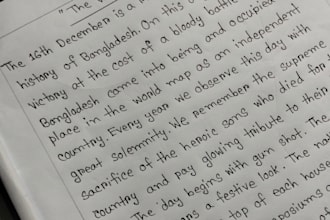 "The V
The 16th December is a
history of Bangladesh. On this
victory at the cost of a bloody battle
Bangladesh came into being and occupied
place in the world map as an independent
country. Every year we observe this day with
great solemnity. We remember the supreme
sacrifice of the heroic sons who died for
country and pay glowing tribute to their
The day begins with gun shot. The
a festive look. The
top of each house